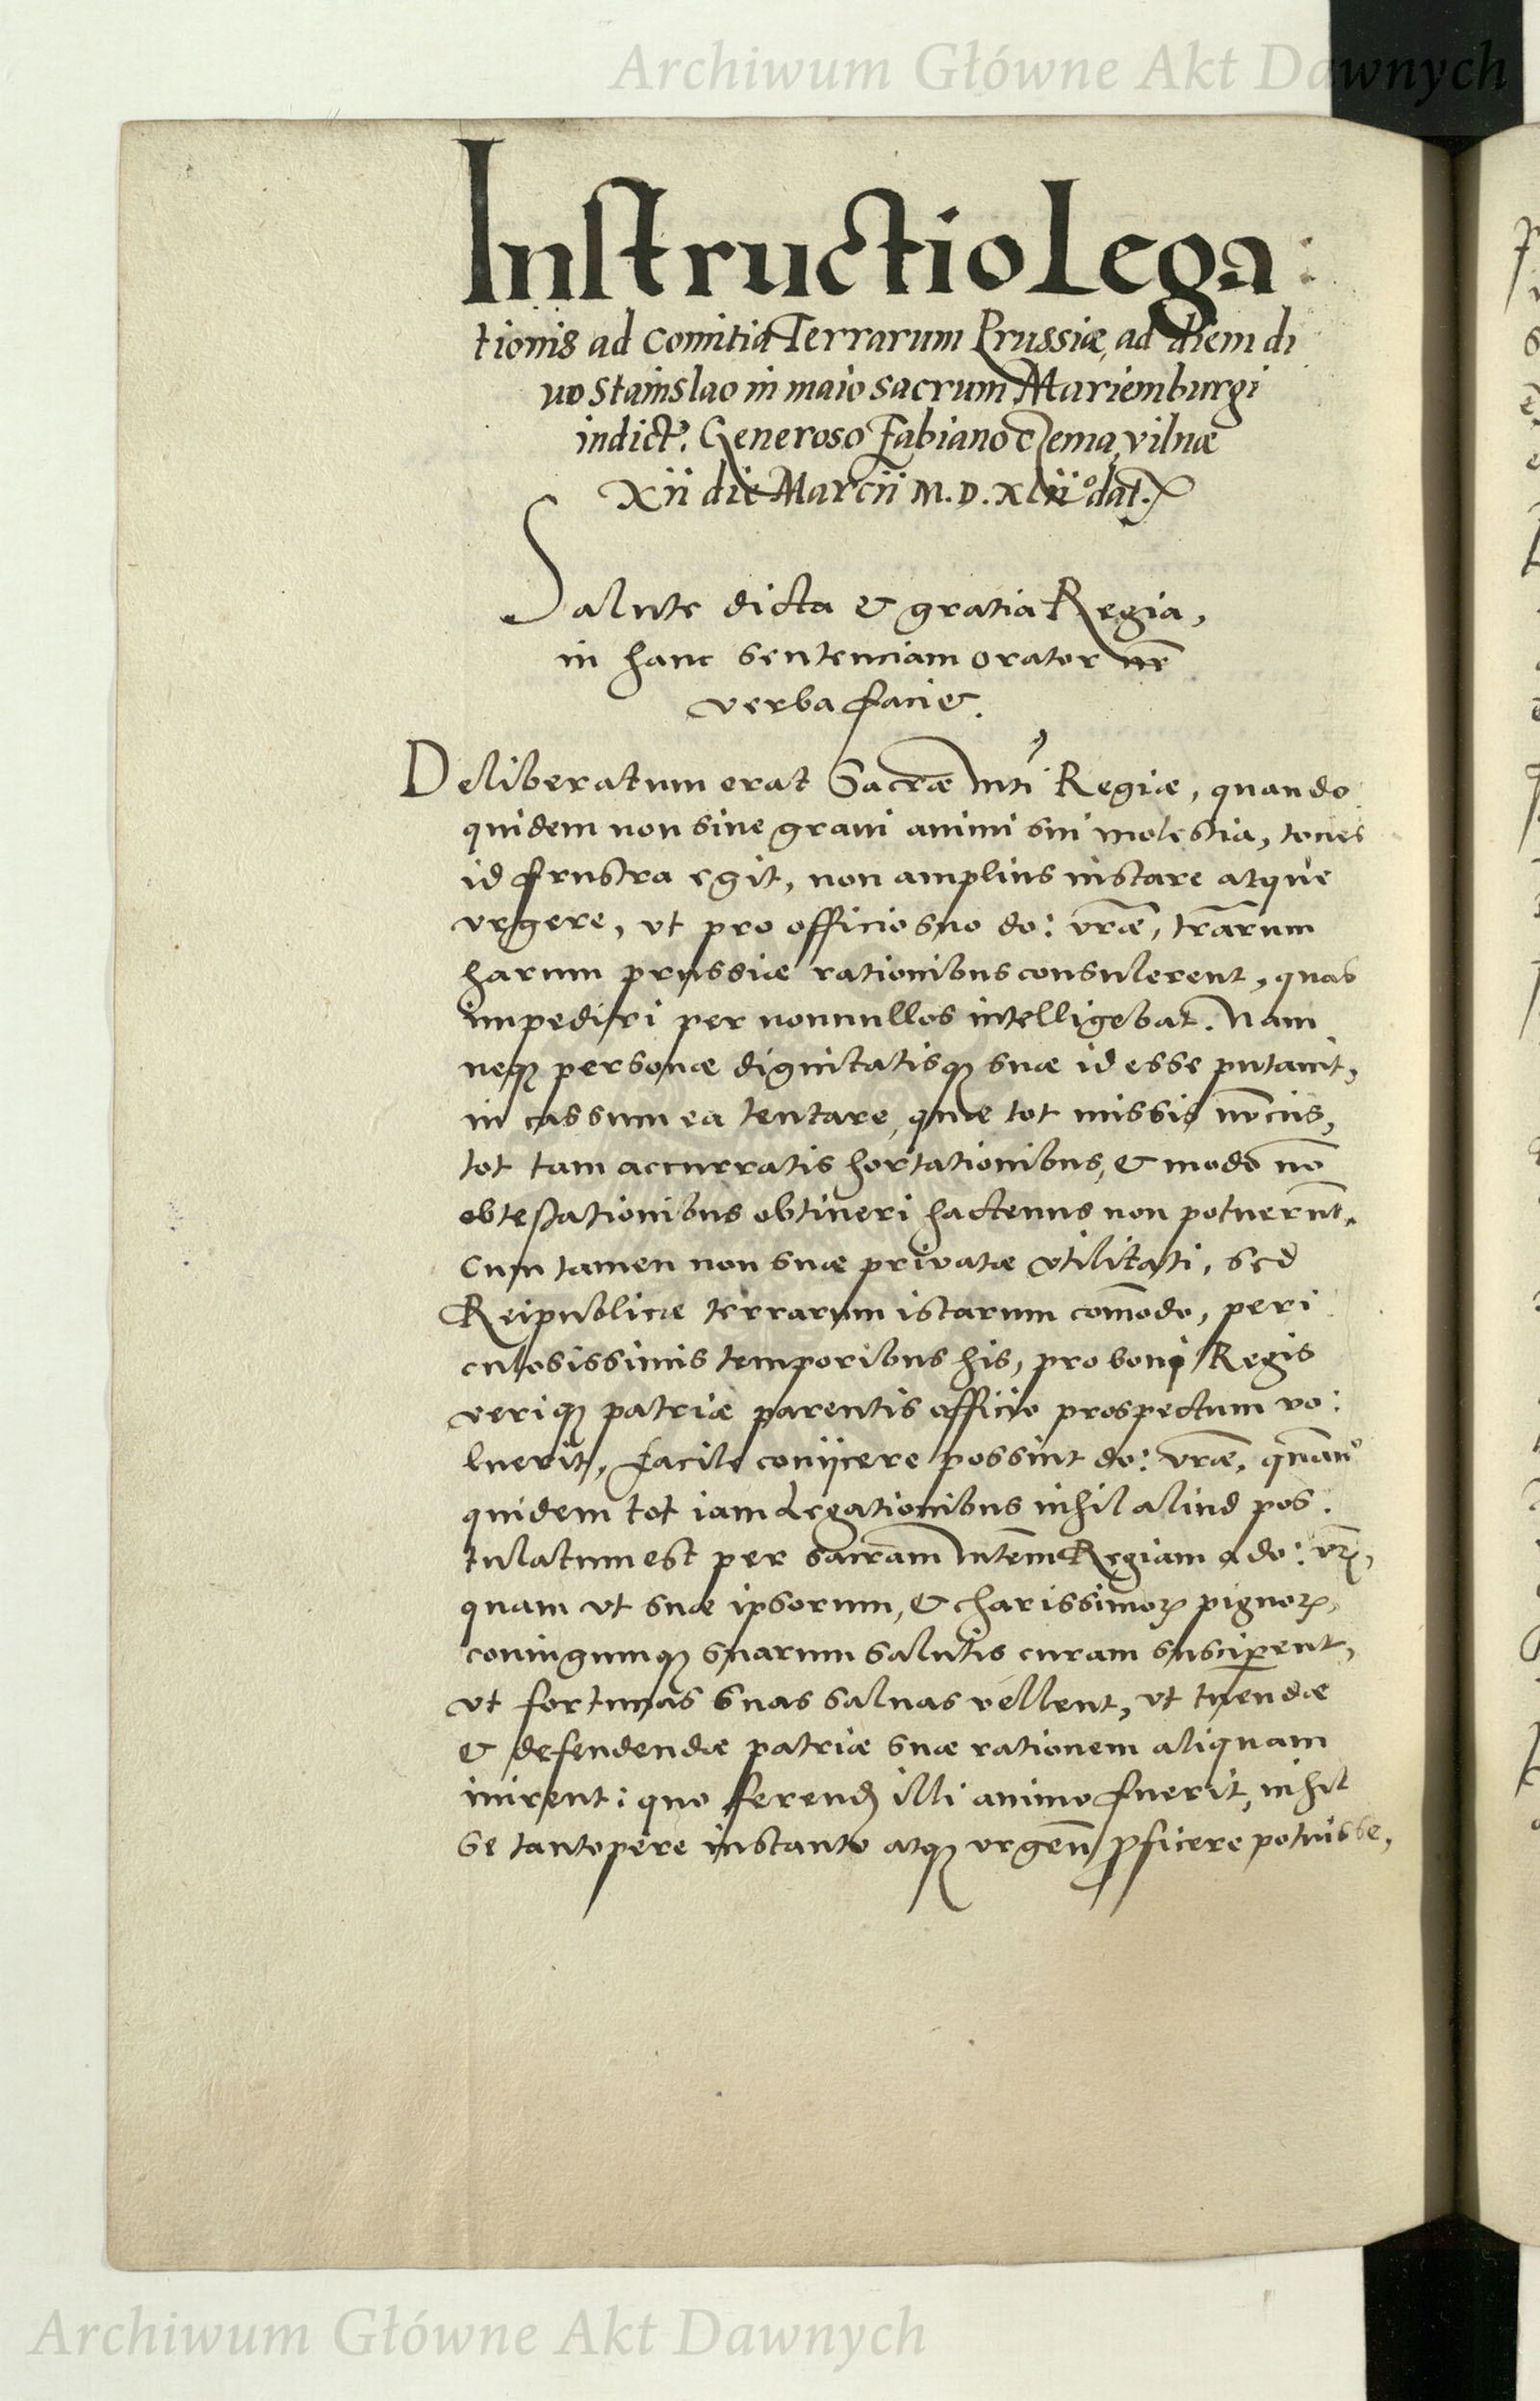 Archiwum Główne Akt Dawnych
Instructio Lega:
tionis ad comitia Terrarum Prussiæ, ad diem di
uo Stanislao in maio sacrum Mariemburgi
indict. Generoso Fabiano Czema, vilnæ
Xii die Marcii M.D.XLii° dat.
Salute dicta & gratia Regia,
in hanc sentenciam orator nr̄
verba faciet.
Deliberatum erat Sacræ Mti Regiæ, quando
quidem non sine graui animi sui molestia, toties
id frustra egit, non amplius instare atque
vrgere, vt pro officio suo do: vr̄æ, tr̄arum
harum prussiæ rationibus consulerent, quas
impediri per nonnullos intelligebat. Nam
neq3 personæ dignitatisq3 suæ id esse putauit,
in cassum ea tentare, quæ tot missis nūcijs,
tot tam accurratis hortationibus, & modo nō
obtestationibus obtineri hactenus non potuerūt,
Cum tamen non suæ priuatæ vtilitati, sed
Reipublicæ terrarum istarum com̄odo, peri
culosissimis temporibus his, pro boni Regis
veriq3 patriæ parentis officio prospectum vo:
luerit, facile conijcere possint do: vr̄æ,
quidem tot iam Legationibus nihil aliud pos:
tulatum est per sacram Mtem Regiam a do: vr̄,
quam vt suæ ipsorum, & charissimoꝝ pignoꝝ,
coniugumq3 suarum salutis curam susciperent,
vt fortunas suas saluas vellent, vt tuendæ
& defendendæ patriæ suæ rationem aliquam
inirent: quo ferend illi animo fuerit, nihil
se tantopere instando atq3 vrgen̄ ꝓficere potuisse,
Archiwum Główne Akt Dawnych